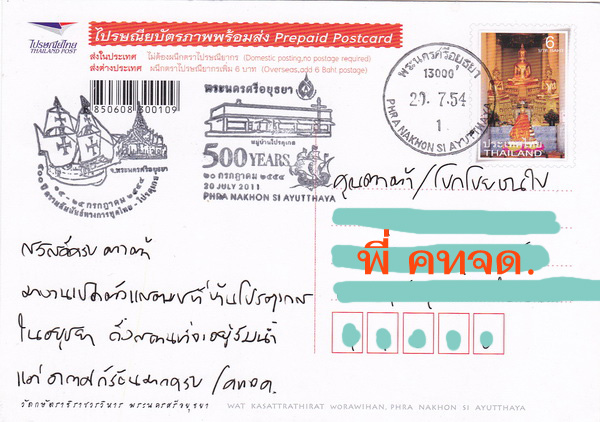 ไปรษณีย์ไทย
THAILAND POST
ไปรษณียบัตรภาพพร้อมส่ง Prepaid Postcard
ส่งในประเทศ ไม่ต้องผนึกตราไปรษณียากร (Domestic posting,no postage required)
ส่งต่างประเทศ ผนึกตราไปรษณียากรเพิ่ม 6 บาท (Overseas,add 6 Baht postage)
8 850608 300109
๕๐๐ ปี ความสัมพันธ์ทางการทูตไทย - โปรตุเกส
๒๔ กรกฎาคม ๒๕๕๔
จ.พระนครศรีอยุธยา
พระนครศรีอยุธยา
หมู่บ้านโปรตุเกส
500 YEARS
๒๐ กรกฎาคม ๒๕๕๔
20 JULY 2011
PHRA NAKHON SI AYUTTHAYA
พระนครศรีอยุธยา
13000
20. 7.54
1
PHRA NAKHON SI AYUTTHAYA
6
บาท BAHT
ประเทศไทย
THAILAND
พี่ คทจด.
สวัสดีครับ
มางานเปิดตัวแสตมป์ที่บ้านโปรตุเกส
ในอยุธยา ซึ่งสถานที่จะอยู่ริมน้ำ
แต่ อากาศก็ร้อนมากครับ / คทจด.
วัดกษัตราธิราชวรวิหาร พระนครศรีอยุธยา WAT KASATTRATHIRAT WORAWIHAN, PHRA NAKHON SI AYUTTHAYA